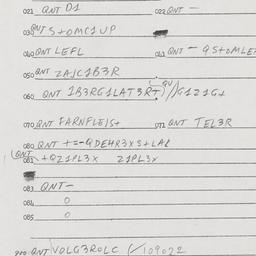 021 QNT D1 022 QNT -
030 QNT S+OMC1UP
040 QNT LEFL 041 QNT - QS+OMLE
050 QNT ZAJC1B3R
060 QNT 1B3RG1LAT3R+ QU//G1Z1G+
070 QNT FARNFLEJS+ 071 QNT TEL3R
080 QNT +=-QDEHR3XS+LAL
QNT 081 +QZ1PL3X Z1PL3X
083 QNT-
084 0
085 0
090 QNT VOLG3ROLC /109022